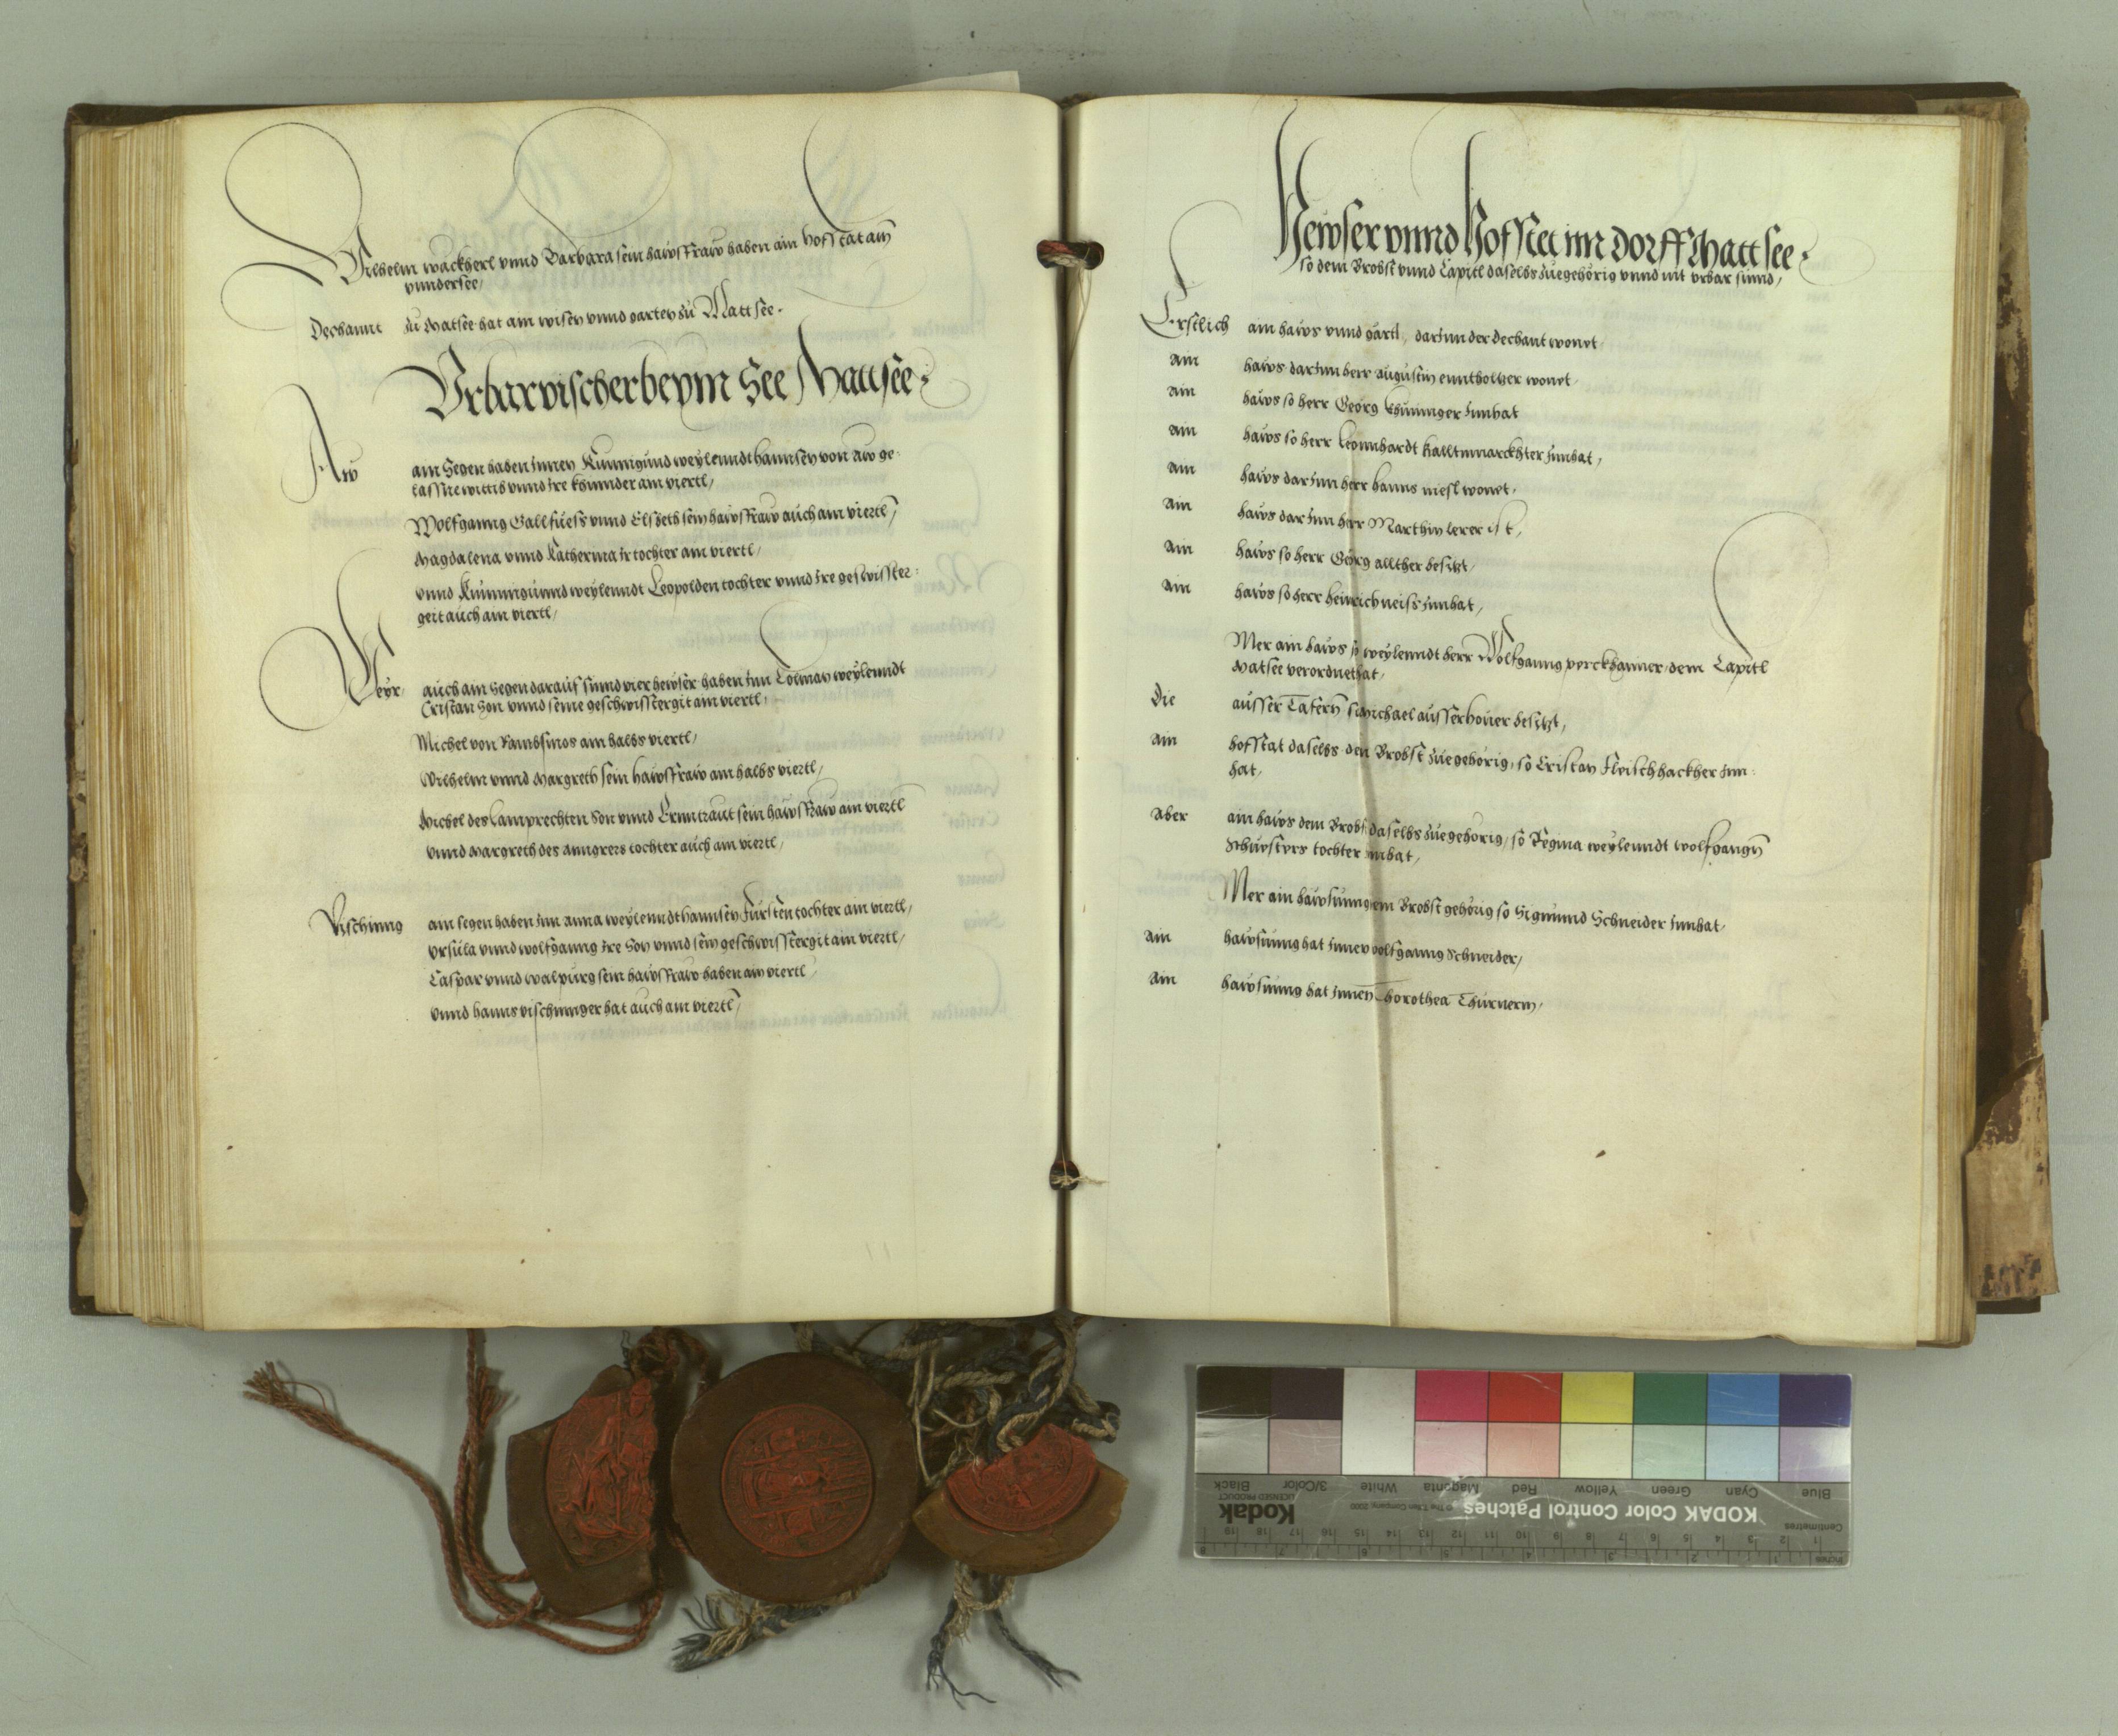 Wilhelm wackherl vnnd Barbara sein hawsfraw haben ain hofstat am
vnndersee,
Dechannt zu Matsee hat ain wisen vnnd garten zu Mattsee.
Vrbar vischer beym See Mattsee
Aw ain Segen haben jnnen Kunnigund weylenndt hannsen von aw ge-
lassne wittib vnnd jre khinnder ain viertl,
Wolfganng Gallfuess vnnd Elsbeth sein hawsfraw auch ain viertl,
Magdalena vnnd Katherina ir tochter ain viertl,
vnnd Kunnigunnd weylenndt Leopolden tochter vnnd jre geswister-
geit auch ain viertl,
Weyr auch ain Segen darauf sinnd vier hewser haben jnn Colman weylenndt
Cristan Son vnnd seine geschwisstergit ain viertl,
Michel von ain halbs viertl,
Wilhelm vnnd Margreth sein hawsfraw ain halbs viertl,
Michel des Lamprechten Son vnnd Ernntraut sein hawsfraw ain viertl
vnnd Margreth des anngrers tochter auch ain viertl,
Vischinng ain segen haben jnn anna weylenndt hannsen Fürsten tochter ain viertl,
vrsula vnnd wolfganng jre Son vnnd sein geschwisstergit ain viertl,
Caspar vnnd walpurg sein hawsfraw haben ain viertl,
vnnd hanns vischinnger hat auch ain viertl,
Hewser vnnd Hofstet im dorff Mattsee.
so dem Brobst vnnd Capitl daselbs zuegehörig vnnd nit vrbar sinnd,
Erstlich ain haws vnnd gärtl, darjnn der dechant wonet
Ain haws darjnn herr augustin ennthollzer wonet
Ain haws so herr Georg jnnhat
Ain haws so herr Leonnhardt kalltnmarckhter jnnhat,
Ain haws darjnn herr hanns niesl wonet.
Ain haws darjnn herr Marthin lerer ist,
Ain haws so herr Georg allther besitzt,
Ain haws so herr heinrich neiss jnnhat,
Mer ain haws so weylenndt herr Wolfganng dem Capitl
Matsee verordnet hat,
Die ausser Tafern so Michael ausserhouer besitzt,
Ain hofstat daselbs den Brobst zuegehörig, so Cristan Fleischhackher jnn-
hat,
Aber ain haws dem Brobst daselbs zuegehörig, so Regina weylenndt wolfgangen
Schuesters tochter jnnhat,
Mer ain hawsunng dem Brobst gehörig so Sigmund Schneider jnnhat,
Ain hawsunng hat jnnen wolfganng Schneider,
Ain hawsunng hat jnnen Dorothea Thurnerin,
Inches
Centimetres
KODAK Color Control Patches
© The Tiffen Company, 2000
Kodak
LICENSED PRODUCT
Blue Cyan Green Yellow Red Magenta White 3/Color Black
1 2 3 4 5 6 7 8 9 10 11 12 13 14 15 16 17 18 19
1 2 3 4 5 6 7 8